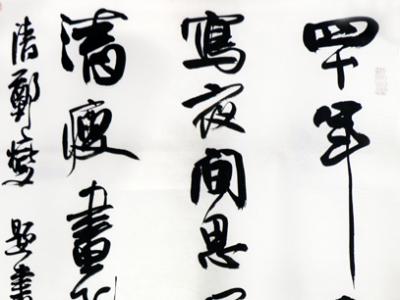 四十年
寫夜間思
清瘦畫
清鄭燮題畫